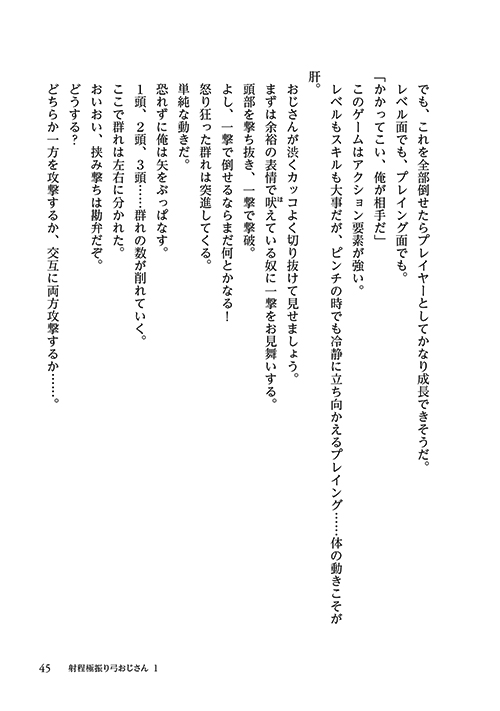 でも、これを全部倒せたらプレイヤーとしてかなり成長できそうだ。
レベル面でも、プレイング面でも。
「かかってこい、俺が相手だ」
このゲームはアクション要素が強い。
レベルもスキルも大事だが、ピンチの時でも冷静に立ち向かえるプレイング……体の動きこそが
肝。
おじさんが渋くカッコよく切り抜けて見せましょう。
まずは余裕の表情で吠えている奴に一撃をお見舞いする。
ほ
頭部を撃ち抜き、一撃で撃破。
よし、一撃で倒せるならまだ何とかなる！
怒り狂った群れは突進してくる。
単純な動きだ。
恐れずに俺は矢をぶっぱなす。
１頭、２頭、３頭……群れの数が削れていく。
ここで群れは左右に分かれた。
おいおい、挟み撃ちは勘弁だぞ。
どうする？
どちらか一方を攻撃するか、交互に両方攻撃するか……。
45 射程極振り弓おじさん 1